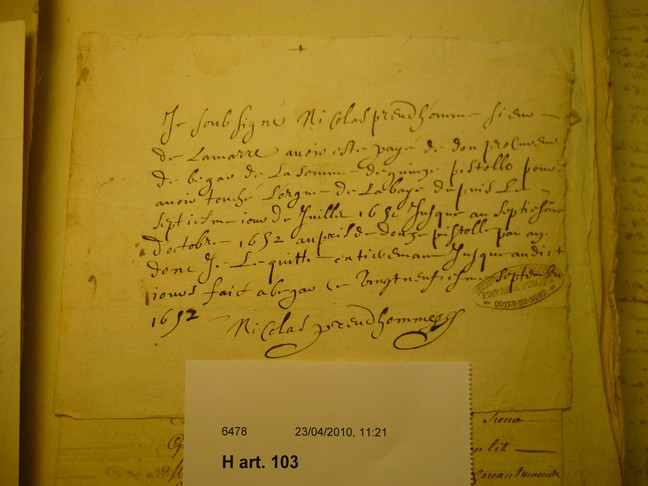 Je soubsigné Nicolas preudhomme sieur
de Lamarre avoir esté payé de don procureur
de begar de La somme de quinze pistolle pour
avoir touché Lorgue de Labaye depuis Le
septiesme jour de Juillet 1651 Jusque au septiesme
doctobre 1652 au pris de douze pistolle par an
dont Je Le quitte entierement Jusque audict
jours fait a begar ce vingtneufiesme septembre
1652
Nicolas preudhomme
COTES-DU-NORD
6478 23/04/2010, 11:21
H art. 103